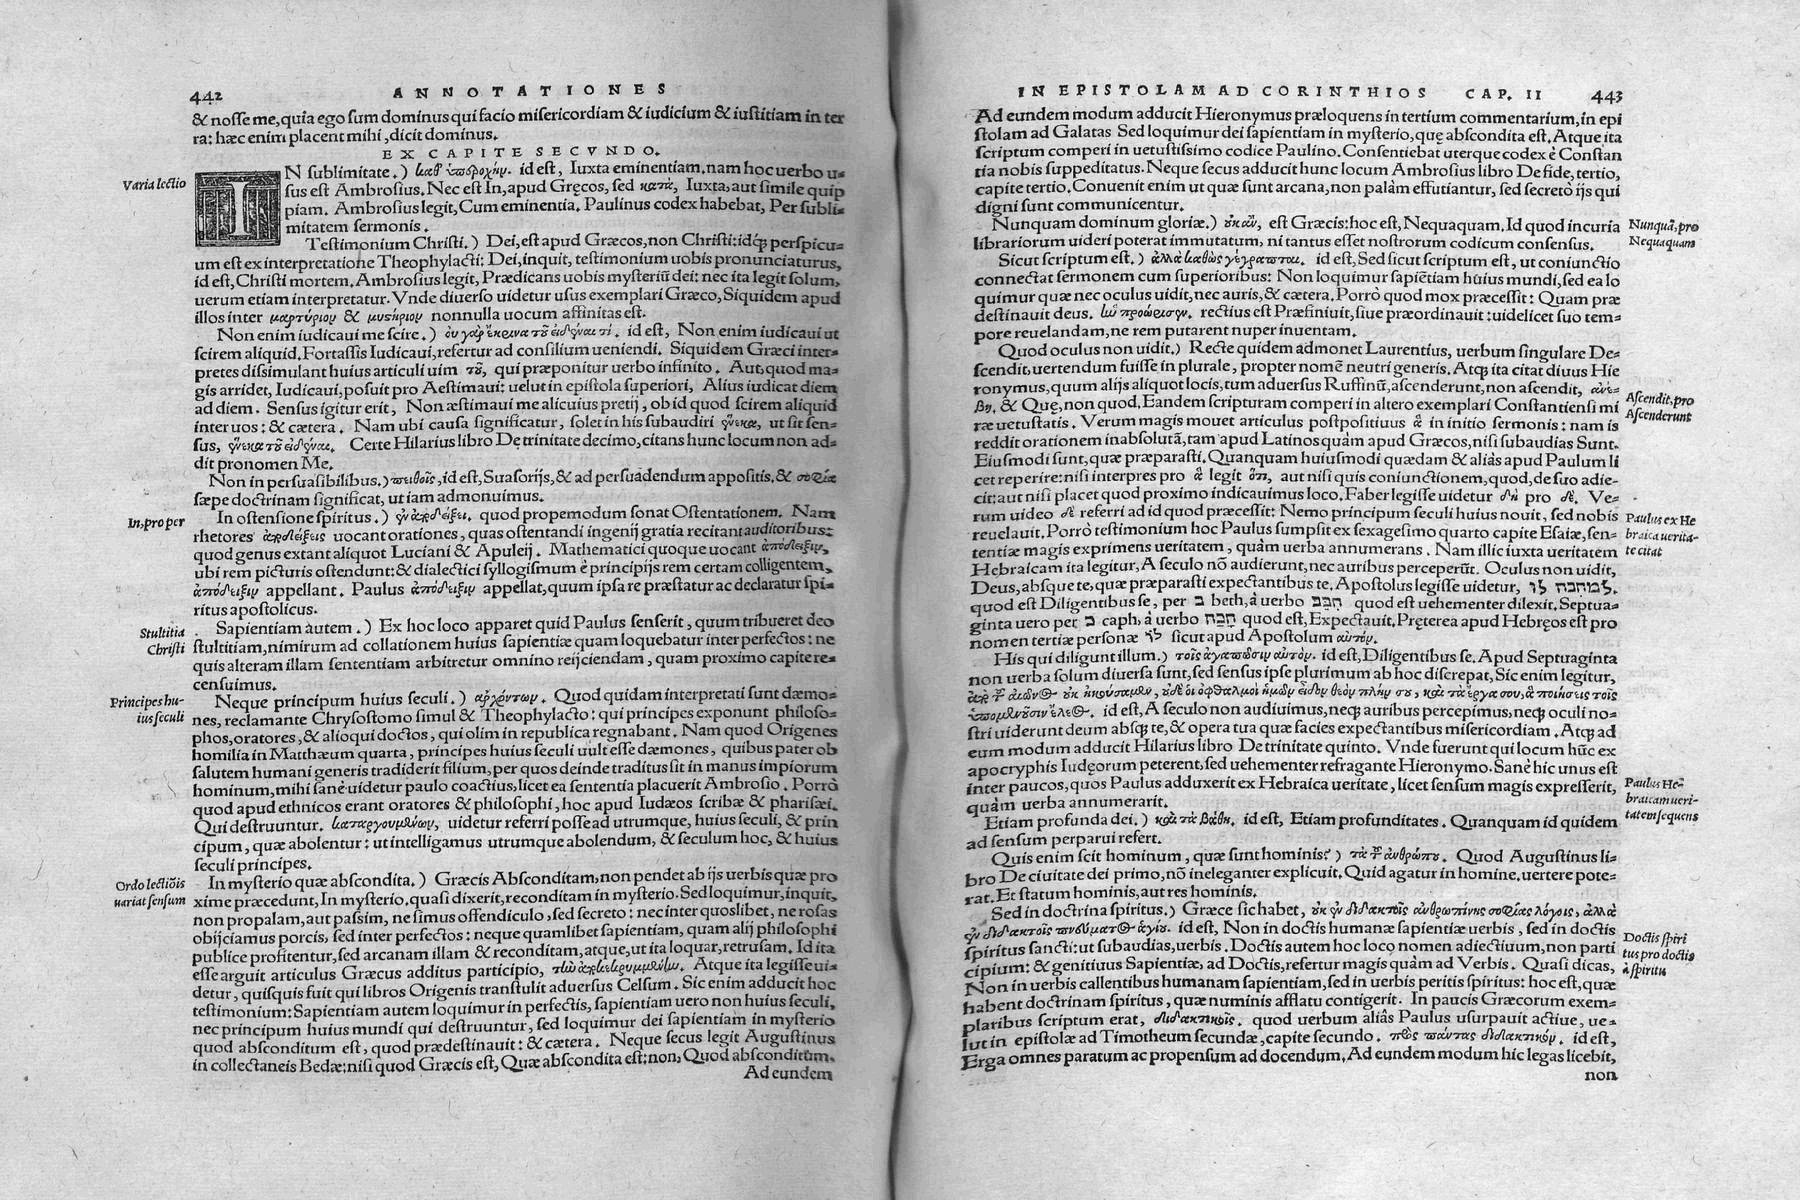 442 ANNOTATIONES
& nosse me, quia ego sum dominus qui facio misericordiam & iudicium & iustitiam in ter
ra: hæc enim placent mihi, dicit dominus.
EX CAPITE SECVNDO.
Varia lectio
IN sublimitate.) καθ' ὑπεροχήν. id est, Iuxta eminentiam. nam hoc uerbo u-
sus est Ambrosius. Nec est In, apud Gręcos, sed κατὰ, Iuxta, aut simile quip
piam. Ambrosius legit, Cum eminentia. Paulinus codex habebat, Per subli-
mitatem sermonis.
Testimonium Christi.) Dei, est apud Græcos, non Christi: idq́; perspicu-
um est ex interpretatione Theophylacti: Dei, inquit, testimonium uobis pronunciaturus,
id est, Christi mortem. Ambrosius legit, Prædicans uobis mysteriũ dei: nec ita legit solum,
uerum etiam interpretatur. Vnde diuerso uidetur usus exemplari Græco, Siquidem apud
illos inter μαρτύριον & μυστήριον nonnulla uocum affinitas est.
Non enim iudicaui me scire.) οὐ γὰρ ἔκρινα τοῦ εἰδέναι τί. id est, Non enim iudicaui ut
scirem aliquid. Fortassis Iudicaui, refertur ad consilium ueniendi. Siquidem Græci inter-
pretes dissimulant huius articuli uim τοῦ, qui præponitur uerbo infinito. Aut, quod ma-
gis arridet, Iudicaui, posuit pro Aestimaui: uelut in epistola superiori, Alius iudicat diem
ad diem. Sensus igitur erit, Non æstimaui me alicuius pretij, ob id quod scirem aliquid
inter uos: & cætera. Nam ubi causa significatur, solet in his subaudiri ἕνεκα, ut sit sen-
sus, ἕνεκα τοῦ εἰδέναι. Certe Hilarius libro De trinitate decimo, citans hunc locum non ad-
dit pronomen Me.
Non in persuasibilibus.) πειθοῖς, id est, Suasorijs, & ad persuadendum appositis, & σοφία
sæpe doctrinam significat, ut iam admonuimus.
In, pro per
In ostensione spiritus.) ἐν ἀποδείξει. quod propemodum sonat Ostentationem. Nam
rhetores ἀποδείξεις uocant orationes, quas ostentandi ingenij gratia recitant auditoribus:
quod genus extant aliquot Luciani & Apuleij. Mathematici quoque uocant ἀπόδειξιν,
ubi rem picturis ostendunt: & dialectici syllogismum è principijs rem certam colligentem,
ἀπόδειξιν appellant. Paulus ἀπόδειξιν appellat, quum ipsa re præstatur ac declaratur spi-
ritus apostolicus.
Stultitia
Christi
Sapientiam autem.) Ex hoc loco apparet quid Paulus senserit, quum tribueret deo
stultitiam, nimirum ad collationem huius sapientiæ quam loquebatur inter perfectos: ne
quis alteram illam sententiam arbitretur omnino reijciendam, quam proximo capite re-
censuimus.
Principes hu-
ius seculi
Neque principum huius seculi.) ἀρχόντων. Quod quidam interpretati sunt dæmo-
nes, reclamante Chrysostomo simul & Theophylacto: qui principes exponunt philoso-
phos, oratores, & alioqui doctos, qui olim in republica regnabant. Nam quod Origenes
homilia in Matthæum quarta, principes huius seculi uult esse dæmones, quibus pater ob
salutem humani generis tradiderit filium, per quos deinde traditus sit in manus impiorum
hominum, mihi sanè uidetur paulo coactius, licet ea sententia placuerit Ambrosio. Porrò
quod apud ethnicos erant oratores & philosophi, hoc apud Iudæos scribæ & pharisæi.
Qui destruuntur. καταργουμένων, uidetur referri posse ad utrumque, huius seculi, & prin
cipum, quæ abolentur: ut intelligamus utrumque abolendum, & seculum hoc, & huius
seculi principes.
Ordo lectiõis
uariat sensum
In mysterio quæ abscondita.) Græcis Absconditam, non pendet ab ijs uerbis quæ pro
xime præcedunt, In mysterio. quasi dixerit, reconditam in mysterio. Sed loquimur, inquit,
non propalam, aut passim, ne simus offendiculo, sed secreto: nec inter quoslibet, ne rosas
obijciamus porcis, sed inter perfectos: neque quamlibet sapientiam, quam alij philosophi
publice profitentur, sed arcanam illam & reconditam, atque, ut ita loquar, retrusam. Id ita
esse arguit articulus Græcus additus participio, τὴν ἀποκεκρυμμένην. Atque ita legisse ui-
detur, quisquis fuit qui libros Origenis transtulit aduersus Celsum. Sic enim adducit hoc
testimonium: Sapientiam autem loquimur in perfectis, sapientiam uero non huius seculi,
nec principum huius mundi qui destruuntur, sed loquimur dei sapientiam in mysterio
quod absconditum est, quod prædestinauit: & cætera. Neque secus legit Augustinus
in collectaneis Bedæ: nisi quod Græcis est, Quæ abscondita est: non, Quod absconditum.
Ad eundem
IN EPISTOLAM AD CORINTHIOS CAP. II 443
Ad eundem modum adducit Hieronymus præloquens in tertium commentarium, in epi
stolam ad Galatas Sed loquimur dei sapientiam in mysterio, quę abscondita est. Atque ita
scriptum comperi in uetustissimo codice Paulino. Consentiebat uterque codex è Constan
tia nobis suppeditatus. Neque secus adducit hunc locum Ambrosius libro De fide, tertio,
capite tertio. Conuenit enim ut quæ sunt arcana, non palàm effutiantur, sed secretò ijs qui
digni sunt communicentur.
Nunquã, pro
Nequaquam
Nunquam dominum gloriæ.) οὐκ ἂν, est Græcis: hoc est, Nequaquam. Id quod incuria
librariorum uideri poterat immutatum, ni tantus esset nostrorum codicum consensus.
Sicut scriptum est.) ἀλλὰ καθὼς γέγραπται. id est, Sed sicut scriptum est, ut coniunctio
connectat sermonem cum superioribus: Non loquimur sapiẽtiam huius mundi, sed ea lo
quimur quæ nec oculus uidit, nec auris, & cætera. Porrò quod mox præcessit: Quam præ
destinauit deus. ἣν προώρισεν. rectius est Præfiniuit, siue præordinauit: uidelicet suo tem-
pore reuelandam, ne rem putarent nuper inuentam.
Quod oculus non uidit.) Recte quidem admonet Laurentius, uerbum singulare De-
scendit, uertendum fuisse in plurale, propter nomẽ neutri generis. Atq; ita citat diuus Hie
ronymus, quum alijs aliquot locis, tum aduersus Ruffinũ, ascenderunt, non ascendit, ἀνέ-
Ascendit, pro
Ascenderunt
βη. & Quę, non quod. Eandem scripturam comperi in altero exemplari Constantiensi mi
ræ uetustatis. Verum magis mouet articulus postpositiuus ἃ in initio sermonis: nam is
reddit orationem inabsolutã, tam apud Latinos quàm apud Græcos, nisi subaudias Sunt.
Eiusmodi sunt, quæ præparasti. Quanquam huiusmodi quædam & aliàs apud Paulum li
cet reperire: nisi interpres pro ἃ legit ὅτι, aut nisi quis coniunctionem, quod, de suo adie-
cit: aut nisi placet quod proximo indicauimus loco. Faber legisse uidetur δὴ pro δέ. Ve-
rum uideo δὲ referri ad id quod præcessit: Nemo principum seculi huius nouit, sed nobis
Paulus ex He
braica uerita-
te citat
reuelauit. Porrò testimonium hoc Paulus sumpsit ex sexagesimo quarto capite Esaiæ, sen-
tentiæ magis exprimens ueritatem, quàm uerba annumerans. Nam illic iuxta ueritatem
Hebraicam ita legitur, A seculo nõ audierunt, nec auribus perceperũt. Oculus non uidit,
Deus, absque te, quæ præparasti expectantibus te. Apostolus legisse uidetur, למחבה לו.
quod est Diligentibus se, per ב beth, à uerbo חבב quod est uehementer dilexit. Septua-
ginta uero per כ caph, à uerbo חכה quod est, Expectauit. Pręterea apud Hebręos est pro
nomen tertiæ personæ לו sicut apud Apostolum αὐτόν.
His qui diligunt illum.) τοῖς ἀγαπῶσιν αὐτόν. id est, Diligentibus se. Apud Septuaginta
non uerba solum diuersa sunt, sed sensus ipse plurimum ab hoc discrepat, Sic enim legitur,
ἀπὸ τοῦ αἰῶνος οὐκ ἠκούσαμεν, οὐδὲ οἱ ὀφθαλμοὶ ἡμῶν εἶδον θεὸν πλὴν σοῦ, καὶ τὰ ἔργα σου, ἃ ποιήσεις τοῖς
ὑπομένουσιν ἔλεος. id est, A seculo non audiuimus, neq; auribus percepimus, neq; oculi no-
stri uiderunt deum absq; te, & opera tua quæ facies expectantibus misericordiam. Atq; ad
eum modum adducit Hilarius libro De trinitate quinto. Vnde fuerunt qui locum hũc ex
apocryphis Iudęorum peterent, sed uehementer refragante Hieronymo. Sanè hic unus est
Paulus He-
braicam ueri-
tatem sequens
inter paucos, quos Paulus adduxerit ex Hebraica ueritate, licet sensum magis expresserit,
quàm uerba annumerarit.
Etiam profunda dei.) καὶ τὰ βάθη. id est, Etiam profunditates. Quanquam id quidem
ad sensum perparui refert.
Quis enim scit hominum, quæ sunt hominis?) τὰ τοῦ ἀνθρώπου. Quod Augustinus li-
bro De ciuitate dei primo, nõ ineleganter explicuit. Quid agatur in homine. uertere pote-
rat. Et statum hominis, aut res hominis.
Sed in doctrina spiritus.) Græce sic habet, οὐκ ἐν διδακτοῖς ἀνθρωπίνης σοφίας λόγοις, ἀλλὰ
ἐν διδακτοῖς πνεύματος ἁγίου. id est, Non in doctis humanæ sapientiæ uerbis, sed in doctis
Doctis spiri
tus pro doctis
à spiritu
spiritus sancti: ut subaudias, uerbis. Doctis autem hoc loco nomen adiectiuum, non parti
cipium: & genitiuus Sapientiæ, ad Doctis, refertur magis quàm ad Verbis. Quasi dicas,
Non in uerbis callentibus humanam sapientiam, sed in uerbis peritis spiritus: hoc est, quæ
habent doctrinam spiritus, quæ numinis afflatu contigerit. In paucis Græcorum exem-
plaribus scriptum erat, διδακτικοῖς. quod uerbum aliâs Paulus usurpauit actiue, ue-
lut in epistolæ ad Timotheum secundæ, capite secundo. πρὸς πάντας διδακτικόν. id est,
Erga omnes paratum ac propensum ad docendum. Ad eundem modum hic legas licebit,
non